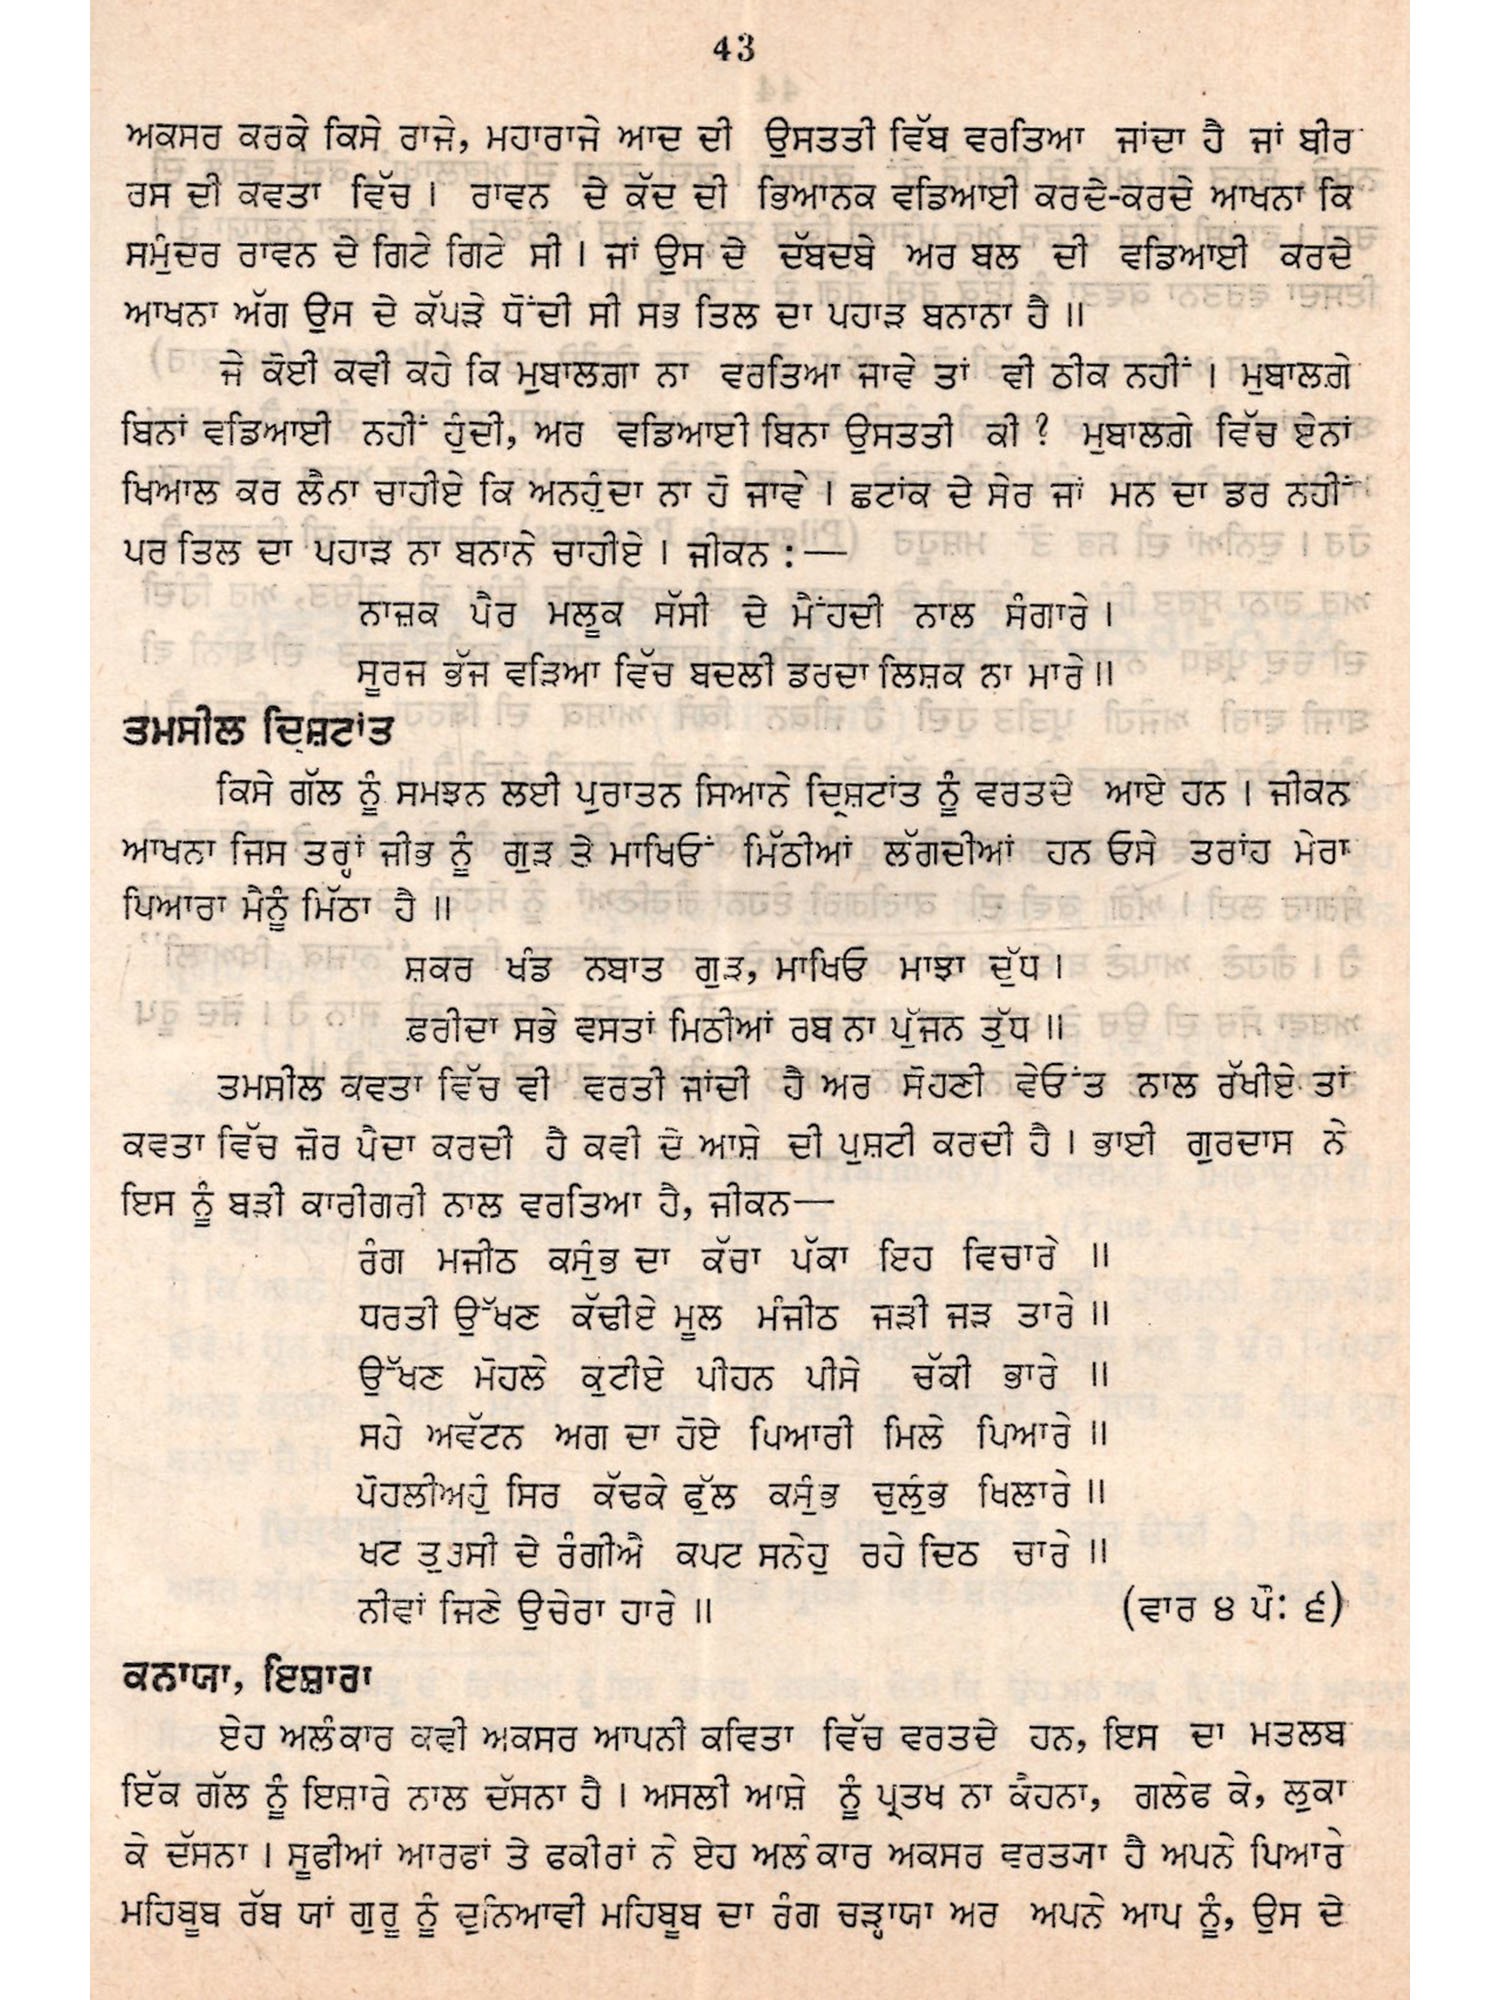 43
ਅਕਸਰ ਕਰਕੇ ਕਿਸੇ ਰਾਜੇ, ਮਹਾਰਾਜੇ ਆਦ ਦੀ ਉਸਤਤੀ ਵਿੱਬ ਵਰਤਿਆ ਜਾਂਦਾ ਹੈ ਜਾਂ ਬੀਰ
ਰਸ ਦੀ ਕਵਤਾ ਵਿੱਚ । ਰਾਵਨ ਦੇ ਕੱਦ ਦੀ ਭਿਆਨਕ ਵਡਿਆਈ ਕਰਦੇ-ਕਰਦੇ ਆਖਨਾ ਕਿ
ਸਮੁੰਦਰ ਰਾਵਨ ਦੇ ਗਿਟੇ ਗਿਟੇ ਸੀ । ਜਾਂ ਉਸ ਦੇ ਦੱਬਦਬੇ ਅਰ ਬਲ ਦੀ ਵਡਿਆਈ ਕਰਦੇ
ਆਖਨਾ ਅੱਗ ਉਸ ਦੇ ਕੱਪੜੇ ਧੋਂਦੀ ਸੀ ਸਭ ਤਿਲ ਦਾ ਪਹਾੜ ਬਨਾਨਾ ਹੈ ॥
ਜੇ ਕੋਈ ਕਵੀ ਕਹੇ ਕਿ ਮੁਬਾਲਗ਼ਾ ਨਾ ਵਰਤਿਆ ਜਾਵੇ ਤਾਂ ਵੀ ਠੀਕ ਨਹੀਂ । ਮੁਬਾਲਗ਼ੇ
ਬਿਨਾਂ ਵਡਿਆਈ ਨਹੀਂ ਹੁੰਦੀ, ਅਰ ਵਡਿਆਈ ਬਿਨਾ ਉਸਤਤੀ ਕੀ ? ਮੁਬਾਲਗ਼ੇ ਵਿੱਚ ਏਨਾਂ
ਖਿਆਲ ਕਰ ਲੈਨਾ ਚਾਹੀਏ ਕਿ ਅਨਹੁੰਦਾ ਨਾ ਹੋ ਜਾਵੇ । ਛਟਾਂਕ ਦੇ ਸੇਰ ਜਾਂ ਮਨ ਦਾ ਡਰ ਨਹੀਂ
ਪਰ ਤਿਲ ਦਾ ਪਹਾੜ ਨਾ ਬਨਾਨੇ ਚਾਹੀਏ । ਜੀਕਨ :—
ਨਾਜ਼ਕ ਪੈਰ ਮਲੂਕ ਸੱਸੀ ਦੇ ਮੈਂਹਦੀ ਨਾਲ ਸੰਗਾਰੇ ।
ਸੂਰਜ ਭੱਜ ਵੜਿਆ ਵਿੱਚ ਬਦਲੀ ਡਰਦਾ ਲਿਸ਼ਕ ਨਾ ਮਾਰੇ ॥
ਤਮਸੀਲ ਦ੍ਰਿਸ਼ਟਾਂਤ
ਕਿਸੇ ਗੱਲ ਨੂੰ ਸਮਝਨ ਲਈ ਪੁਰਾਤਨ ਸਿਆਨੇ ਦ੍ਰਿਸ਼ਟਾਂਤ ਨੂੰ ਵਰਤਦੇ ਆਏ ਹਨ । ਜੀਕਨ
ਆਖਨਾ ਜਿਸ ਤਰ੍ਹਾਂ ਜੀਭ ਨੂੰ ਗੁੜ ਤੇ ਮਾਖਿਓਂ ਮਿੱਠੀਆਂ ਲੱਗਦੀਆਂ ਹਨ ਓਸੇ ਤਰਾਂਹ ਮੇਰਾ
ਪਿਆਰਾ ਮੈਨੂੰ ਮਿੱਠਾ ਹੈ ॥
ਸ਼ਕਰ ਖੰਡ ਨਬਾਤ ਗੁੜ, ਮਾਖਿਓ ਮਾਝਾ ਦੁੱਧ ।
ਫ਼ਰੀਦਾ ਸਭੇ ਵਸਤਾਂ ਮਿਠੀਆਂ ਰਬ ਨਾ ਪੁੱਜਨ ਤੁੱਧ ॥
ਤਮਸੀਲ ਕਵਤਾ ਵਿੱਚ ਵੀ ਵਰਤੀ ਜਾਂਦੀ ਹੈ ਅਰ ਸੋਹਣੀ ਵੇਓਂਤ ਨਾਲ ਰੱਖੀਏ ਤਾਂ
ਕਵਤਾ ਵਿੱਚ ਜ਼ੋਰ ਪੈਦਾ ਕਰਦੀ ਹੈ ਕਵੀ ਦੇ ਆਸ਼ੇ ਦੀ ਪੁਸ਼ਟੀ ਕਰਦੀ ਹੈ । ਭਾਈ ਗੁਰਦਾਸ ਨੇ
ਇਸ ਨੂੰ ਬੜੀ ਕਾਰੀਗਰੀ ਨਾਲ ਵਰਤਿਆ ਹੈ, ਜੀਕਨ—
ਰੰਗ ਮਜੀਠ ਕਸੁੰਭ ਦਾ ਕੱਚਾ ਪੱਕਾ ਇਹ ਵਿਚਾਰੇ ॥
ਧਰਤੀ ਉੱਖਣ ਕੱਢੀਏ ਮੂਲ ਮੰਜੀਠ ਜੜੀ ਜੜ ਤਾਰੇ ॥
ਉੱਖਣ ਮੋਹਲੇ ਕੁਟੀਏ ਪੀਹਨ ਪੀਸੇ ਚੱਕੀ ਭਾਰੇ ॥
ਸਹੇ ਅਵੱਟਨ ਅਗ ਦਾ ਹੋਏ ਪਿਆਰੀ ਮਿਲੇ ਪਿਆਰੇ ॥
ਪੋਹਲੀਅਹੁੰ ਸਿਰ ਕੱਢਕੇ ਫੁੱਲ ਕਸੁੰਭ ਚੁਲੁੰਭ ਖਿਲਾਰੇ ॥
ਖਟ ਦੇ ਰੰਗੀਐ ਕਪਟ ਸਨੇਹੁ ਰਹੇ ਦਿਠ ਚਾਰੇ ॥
ਨੀਵਾਂ ਜਿਣੇ ਉਚੇਰਾ ਹਾਰੇ ॥ (ਵਾਰ ੪ ਪੌ: ੬)
ਕਨਾਯਾ, ਇਸ਼ਾਰਾ
ਏਹ ਅਲੰਕਾਰ ਕਵੀ ਅਕਸਰ ਆਪਨੀ ਕਵਿਤਾ ਵਿੱਚ ਵਰਤਦੇ ਹਨ, ਇਸ ਦਾ ਮਤਲਬ
ਇੱਕ ਗੱਲ ਨੂੰ ਇਸ਼ਾਰੇ ਨਾਲ ਦੱਸਨਾ ਹੈ । ਅਸਲੀ ਆਸ਼ੇ ਨੂੰ ਪ੍ਰਤਖ ਨਾ ਕੈਹਨਾ, ਗਲੇਫ ਕੇ, ਲੁਕਾ
ਕੇ ਦੱਸਨਾ । ਸੂਫੀਆਂ ਆਰਫਾਂ ਤੇ ਫਕੀਰਾਂ ਨੇ ਏਹ ਅਲੰਕਾਰ ਅਕਸਰ ਵਰਤ੍ਯਾ ਹੈ ਅਪਨੇ ਪਿਆਰੇ
ਮਹਿਬੂਬ ਰੱਬ ਯਾਂ ਗੁਰੂ ਨੂੰ ਦੁਨਿਆਵੀ ਮਹਿਬੂਬ ਦਾ ਰੰਗ ਚੜ੍ਹਾਯਾ ਅਰ ਅਪਨੇ ਆਪ ਨੂੰ, ਉਸ ਦੇ